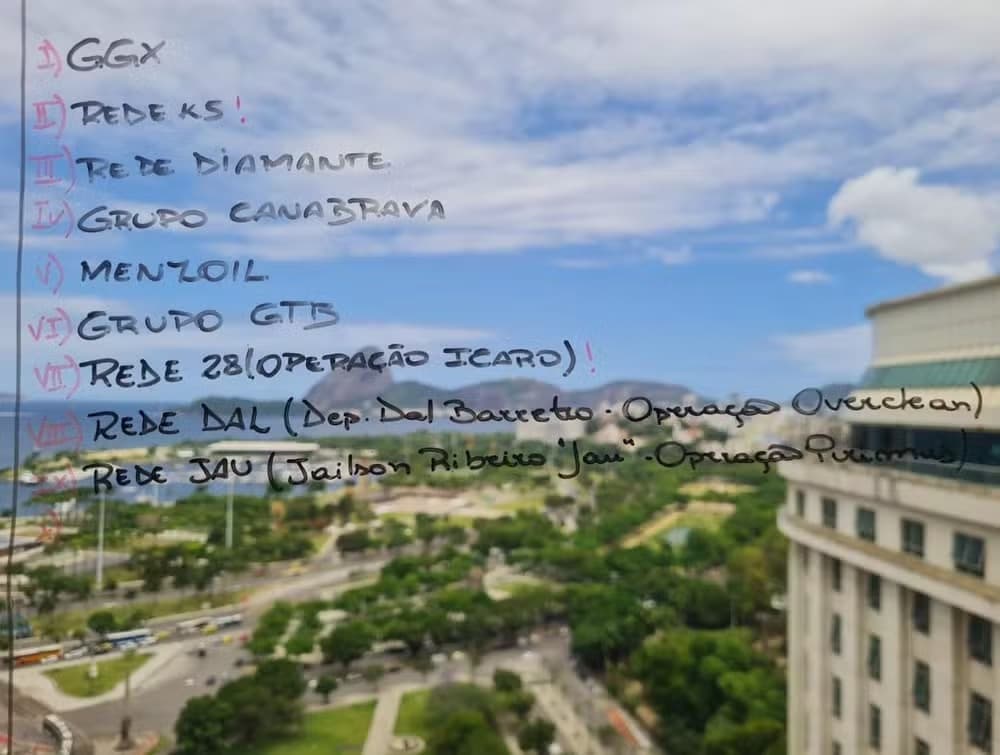 I) GGX
II) REDE K5!
III) REDE DIAMANTE
IV) GRUPO CANABRAVA
V) MENZOIL
VI) GRUPO GTB
VII) REDE 28 (OPERAÇÃO ICARO)!
VIII) REDE DAL (Dep. Dal Barretto - Operação Overclean)
REDE JAU (Jailson Ribeiro "Jau" - Operação